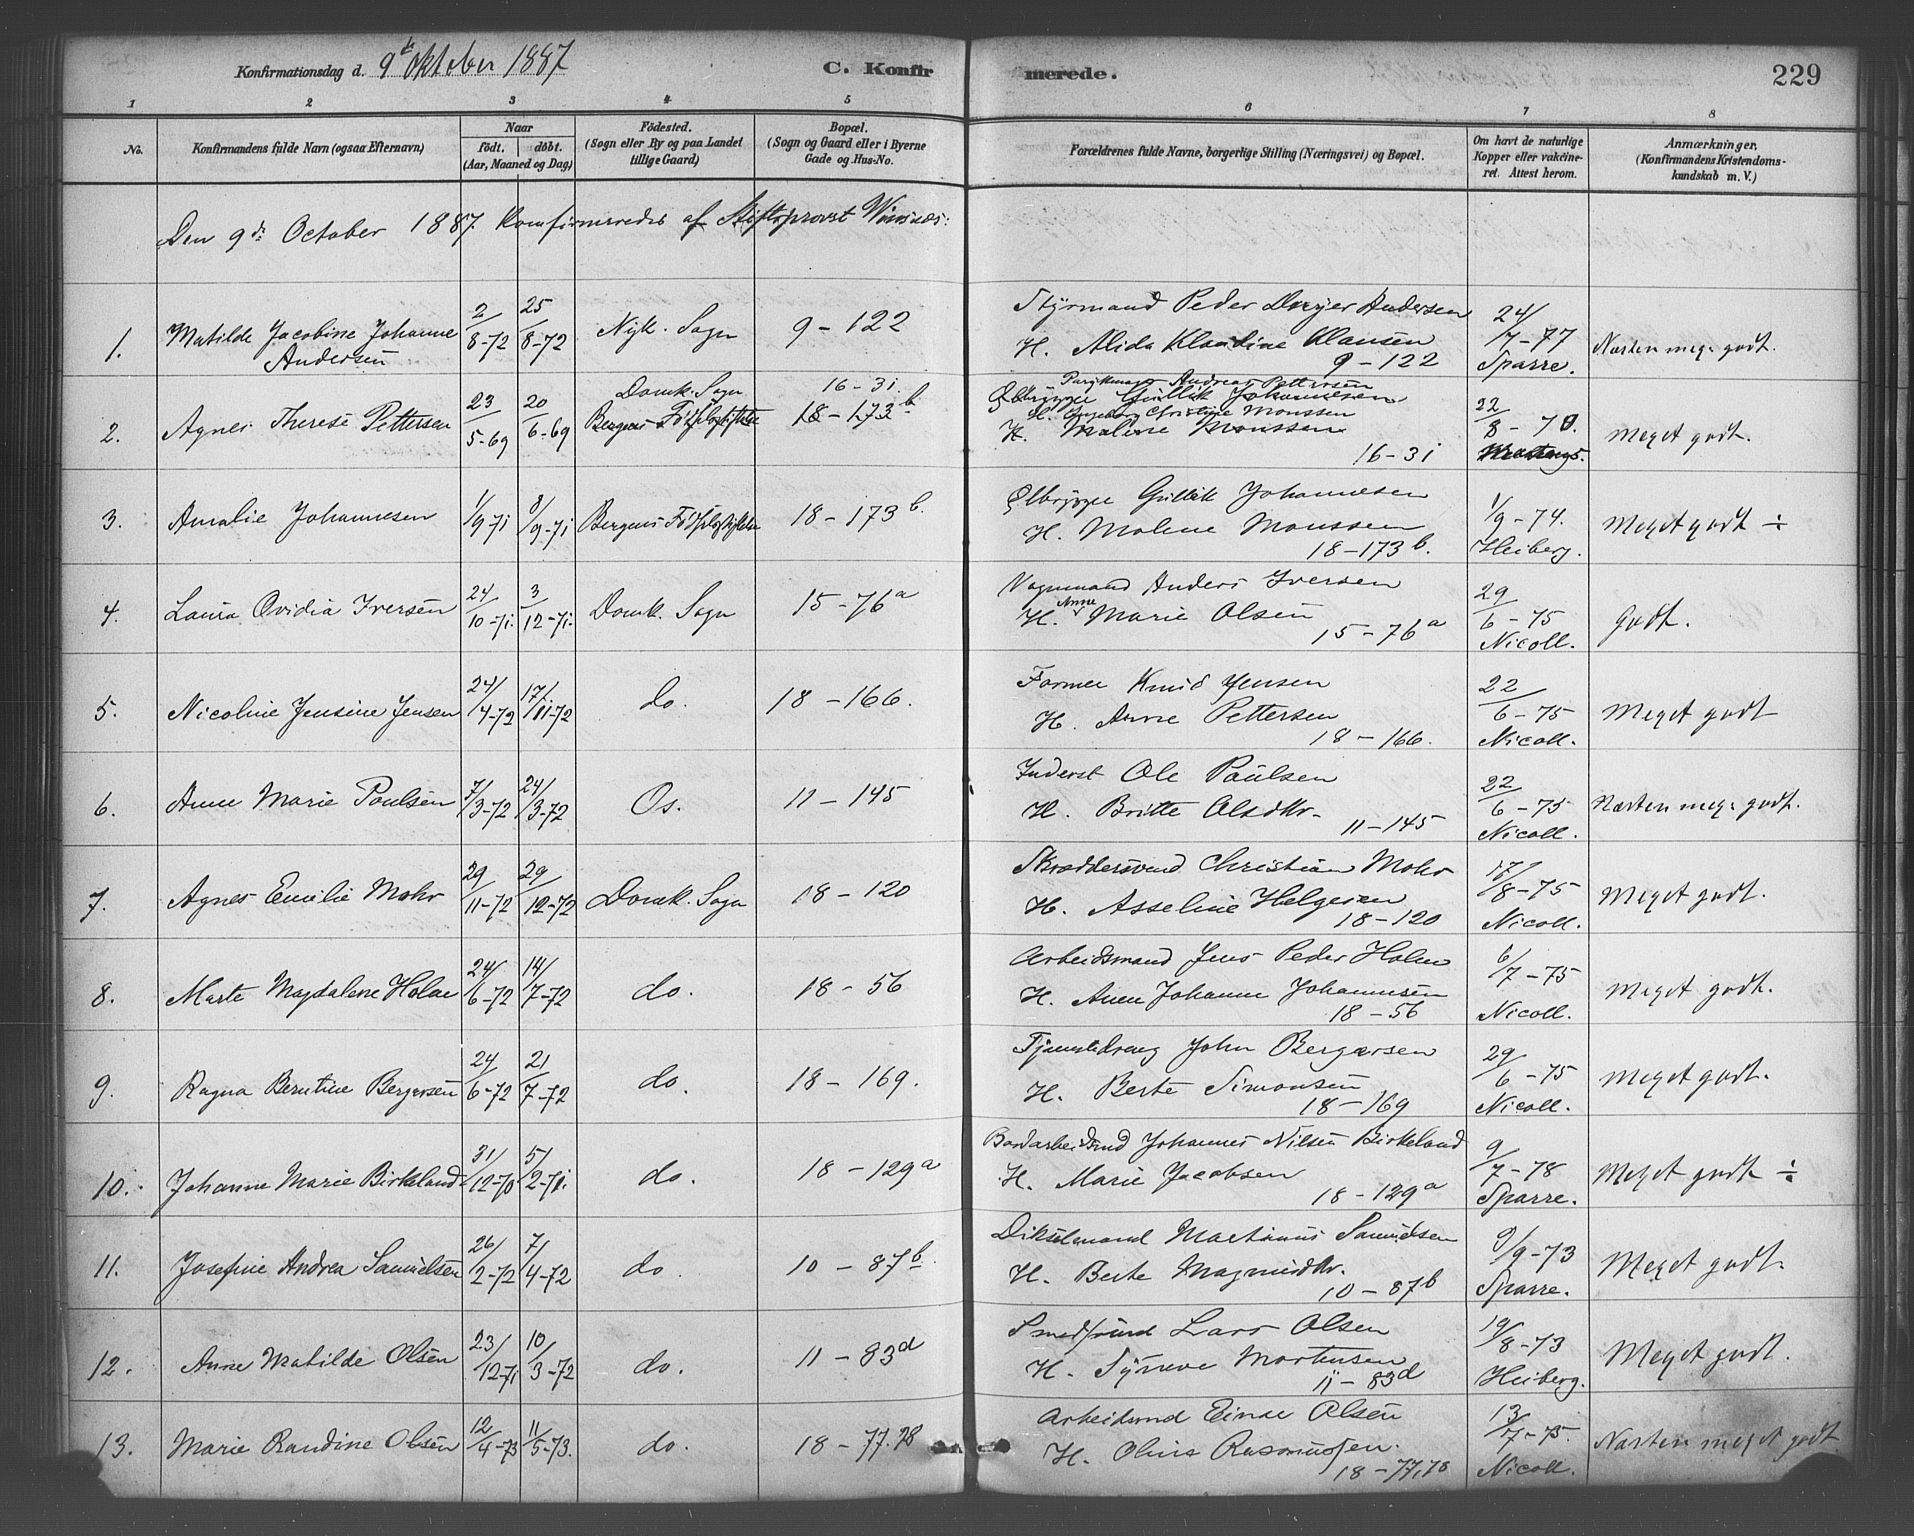 Konfirmationsdag d. 9de Oktober 1887 C. Konfirmerede. 229
1 2 3 4 5 6 7 8
No. Konfirmandens fulde Navn (ogsaa Efternavn) Naar födt. döbt. (Aar, Maaned og Dag) Födested. (Sogn eller By og paa Landet tillige Gaard) Bopæl. (Sogn og Gaard eller i Byerne Gade og Hus-No. Forældrenes fulde Navne, borgerlige Stilling (Næringsvei) og Bopæl. Om havt de naturlige Kopper eller vakcineret. Attest herom. Anmærkninger. (Konfirmandens Kristendomskundskab m. V.)
Den 9de October 1887. Konfirmeredes af Stiftsprovst Wiesnæs:
1. Matilde Jacobine Johanne Andersen 2/8-72 25/8-72 Nyk. Sogn 9-122
Styrmand Peder Andersen
H. Alida Klaudine Clausen 9-122
24/7-77 Sparre. Næsten meg. godt.
2. Agnes Therese Pettersen 23/5-69 20/6-69 Domk. Sogn 16-31.
Bergens Födselsstiftelse 18-173 b
Andreas Pettersen
Ölbrygger Gullik Johannesen
H. Ingeborg Christine Monssen
H. Malene Monssen
16-31
22/8-70. Meget godt.
3. Amalie Johannesen 1/9-71 8/9-71 Bergens Födselsstiftelse 18-173 b.
Ölbrygger Gullik Johannesen
H. Malene Monssen
18-173 b.
1/9-74. Heiberg. Meget godt ÷
4. Laura Ovidia Iversen 24/10-71. 3/12-71. Domk. Sogn 15-76a
Vognmand Anders Iversen
H. Anne Marie Olsen
15-76a
29/6-75 Nicoll. Godt.
5. Nicoline Jensine Jensen 24/4-72 17/11-72 do. 18-166.
Former Knud Jensen
H. Anne Pettersen
18-166.
22/6-75 Nicoll. Meget godt
6. Anne Marie Poulsen 7/3-72 24/3-72 Os. 11-145
Inderst Ole Paulsen
H. Britte Olsdtr. 11-145
22/6-75 Nicoll. Næsten meg. godt.
7. Agnes Emilie Mohr 29/11-72 29/12-72 Domk. Sogn 18-120
Skræddersvend Christian Mohr
H. Asseline Helgesen
18-120
17/8-75 Nicoll. Meget godt.
8. Marte Magdalene Holm 24/6-72 14/7-72 do. 18-56
Arbeidsmand Jens Peder Holm
H. Anne Johanne Johannesen
18-56
6/7-75 Nicoll. Meget godt.
9. Ragna Berntine Bergersen 24/6-72 21/7-72 do. 18-169.
Tjenstedreng John Bergersen
H. Berte Simonsen
18-169
29/6-75 Nicoll. Meget godt.
10. Johanne Marie Birkeland 31/12-70 5/2-71. do. 18-129a
Johannes Nilsen Birkeland
H. Marie Jacobsen
18-129a
9/7-78 Sparre. Meget godt ÷
11. Josefine Andrea Samuelsen 26/2-72 7/4-72 do. 10-87b.
Dikselmand Martinus Samuelsen
H. Berte Magnusdtr.
10-87b
9/9-73 Sparre. Meget godt.
12. Anne Matilde Olsen 23/12-71 10/3-72 do. 11-83d
Smedsvend Lars Olsen
H. Synneve Mortensen
11-83d
19/8-73 Heiberg. Meget godt.
13. Marie Randine Olsen 12/4-73 11/5-73. do. 18-77.78
Arbeidsmd Einar Olsen
H. Oline Rasmussen.
18-77,78
13/7-75. Nicoll. Næsten meget godt.